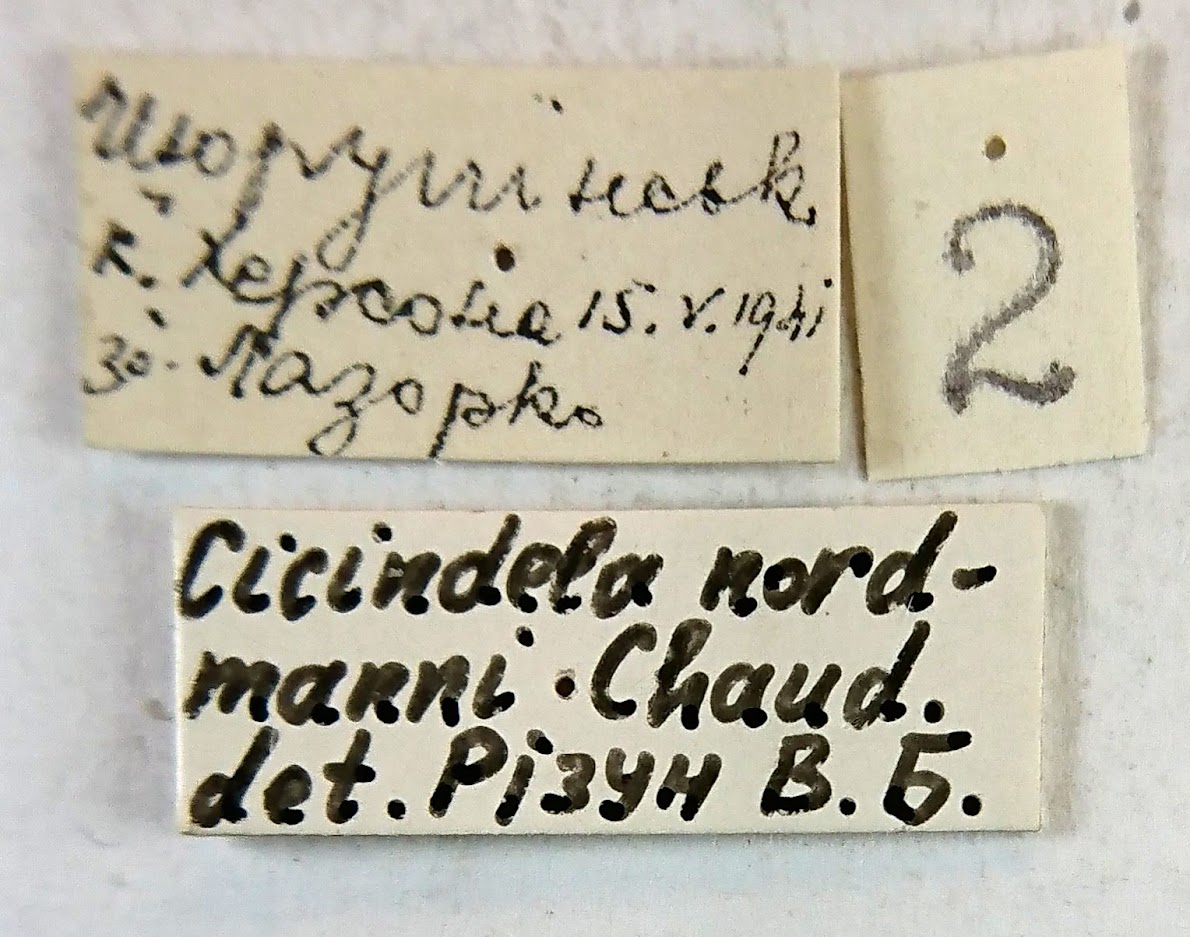 Цюрупїнськ
к. Херсона 15. V. 1941
зб. Лазорко
2
Cicindela nord-
manni Chaud.
det. Різун В. Б.